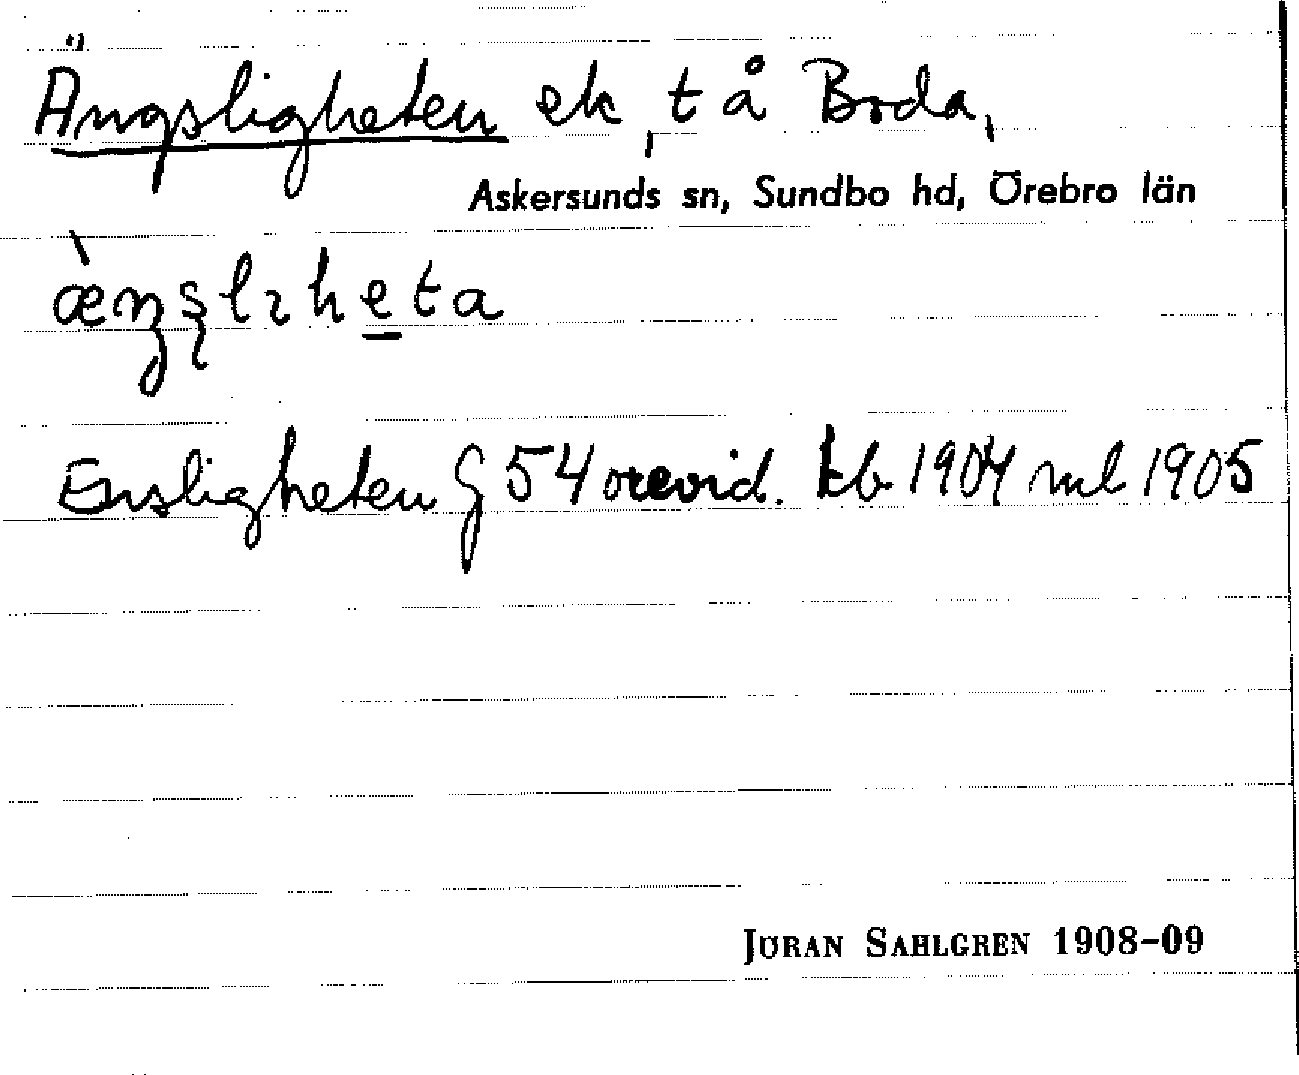 Ängsligheten ek, t å Boda,
Askersunds sn, Sundbo hd, Örebro län
Ensligheten G 54 orevid. kb 1904 ml 1905
JÖRAN SAHLGREN 1908-09